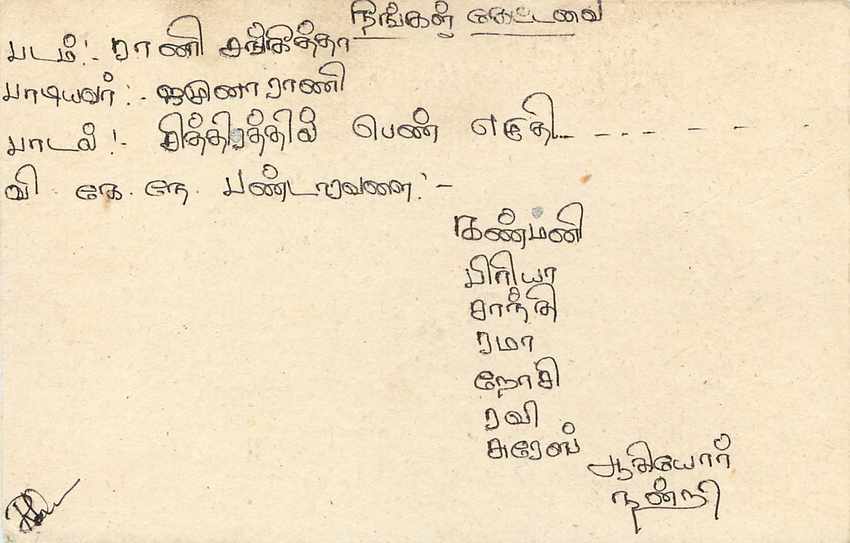 நீங்கள் கேட்டவை
படம்:- ராணி சங்கீத்தா
பாடியவர்:- ஜமுனாராணி
பாடல்:- சித்திரத்தில் பெண் எழுதி... - - - - - .
வி. கே. கே. பண்டாரவளை:-
கண்மனி
பிரியா
சாந்தி
ரமா
ரோசி
ரவி
சுரேஸ்
ஆகியோர்
நன்றி